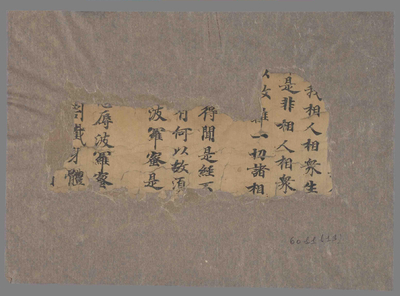 我相人相眾生
是非相人相眾
故離一切諸相
得聞是經不
有何以故須
波羅蜜是
忍辱波羅蜜
割截身體